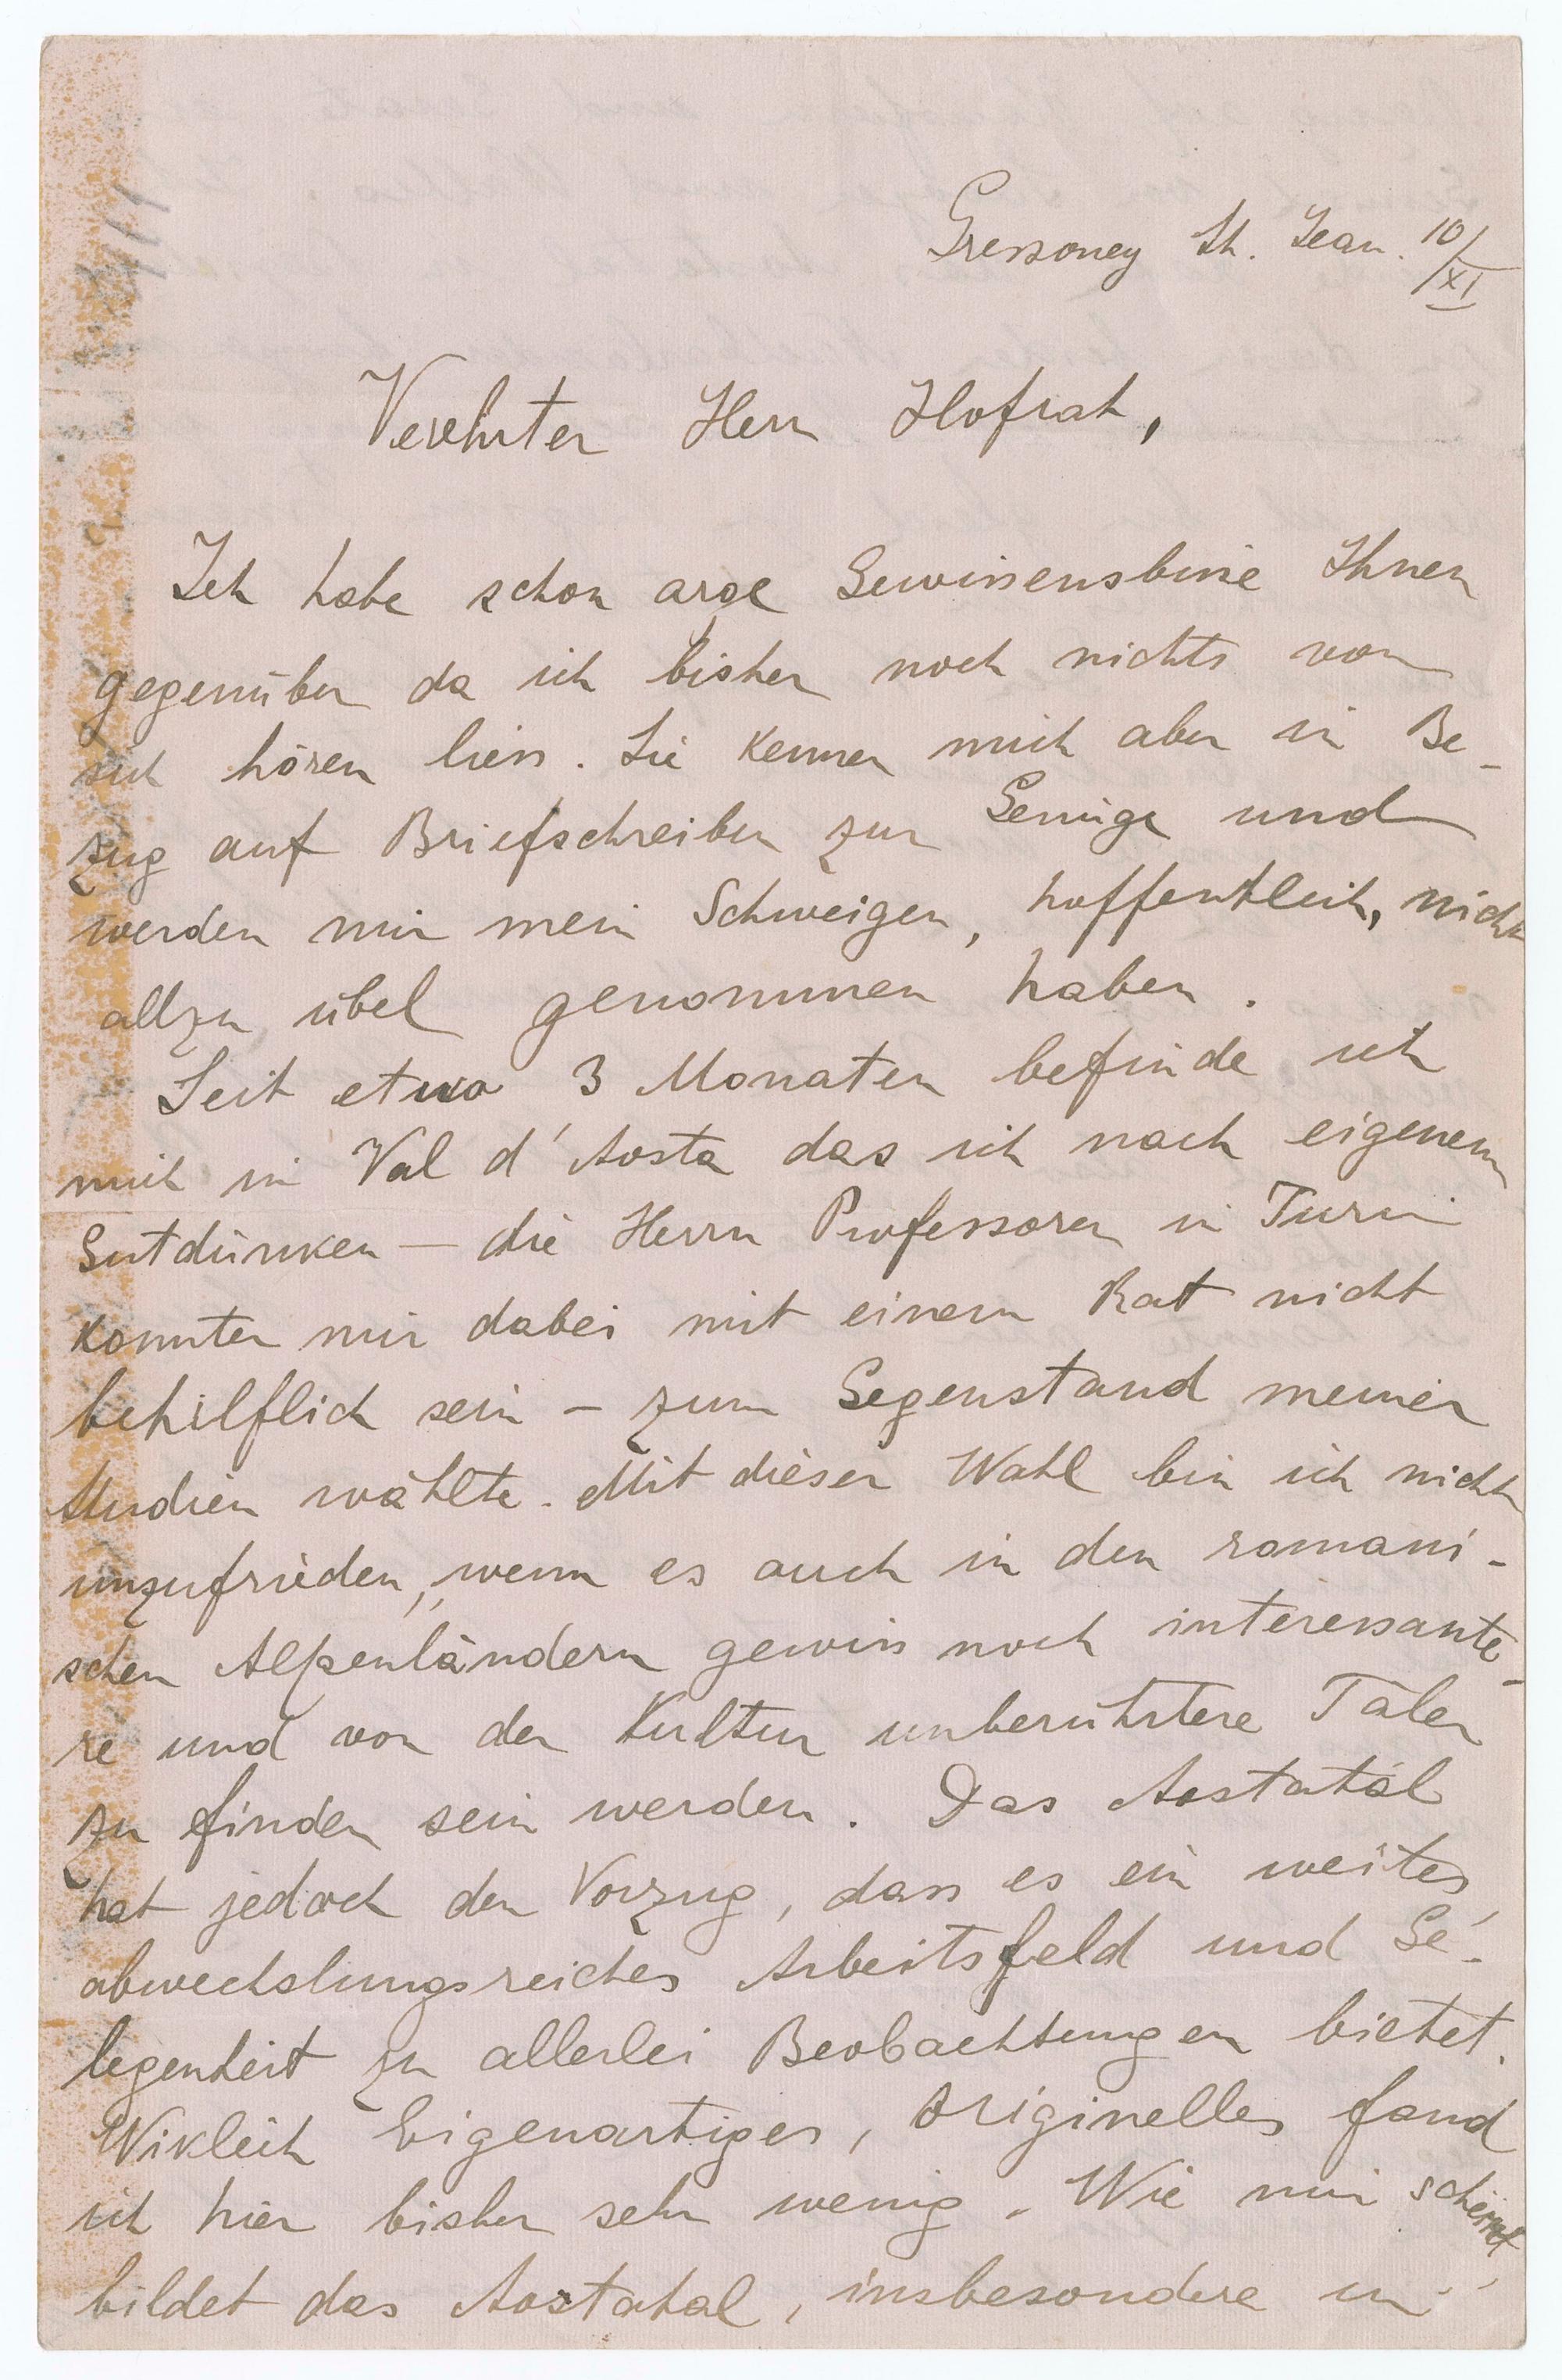 Gressoney St. Jean. 10/XI
Verehrter Herr Hofrat,
Ich habe schon arge Gewissensbisse Ihnen
gegenüber da ich bisher noch nichts von
sich hören liess. Sie kennen mich aber in Be-
zug auf Briefschreiben zur Genüge und
werden mir mein Schweigen, hoffentlich, nicht
allzu übel genommen haben.
Seit etwa 3 Monaten befinde ich
mich in Val d'Aosta das ich nach eigenem
Gutdünken — die Herrn Professoren in Turin
konnten mir dabei mit einem Rat nicht
behilflich sein – zum Gegenstand meiner
Studien wählte. Mit dieser Wahl bin ich nicht
unzufrieden, wenn es auch in den romani-
schen Alpenländern gewiss noch interessante-
re und von der Kultur unberührtere Täler
zu finden sein werden. Das Aostatal
hat jedoch den Vorzug, dass es ein weites
abwechslungsreiches Arbeitsfeld und Ge-
legenheit zu allerlei Beobachtungen bietet.
Wirklich Eigenartiges, Originelles fand
ich hier bisher sehr wenig. Wie mir scheint
bildet das Aostatal, insbesondere in